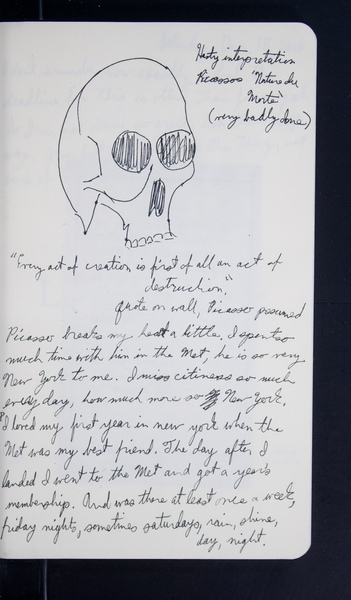 Hasty interpretation
Picassos "Nature de
Morte"
(very badly done)
"Every act of creation is first of all an act of
destruction."
quote on wall, Picasso possumed
Picasso breaks my heart a little. I spent so
much time with him in the Met, he is so very
New York to me. I miss citiness so much
every day, how much more so New York.
I loved my first year in new york when the
Met was my best friend. The day after I
landed I went to the Met and got a year's
membership. And was there at least once a week,
friday nights, sometimes saturdays, rain, shine,
day, night.